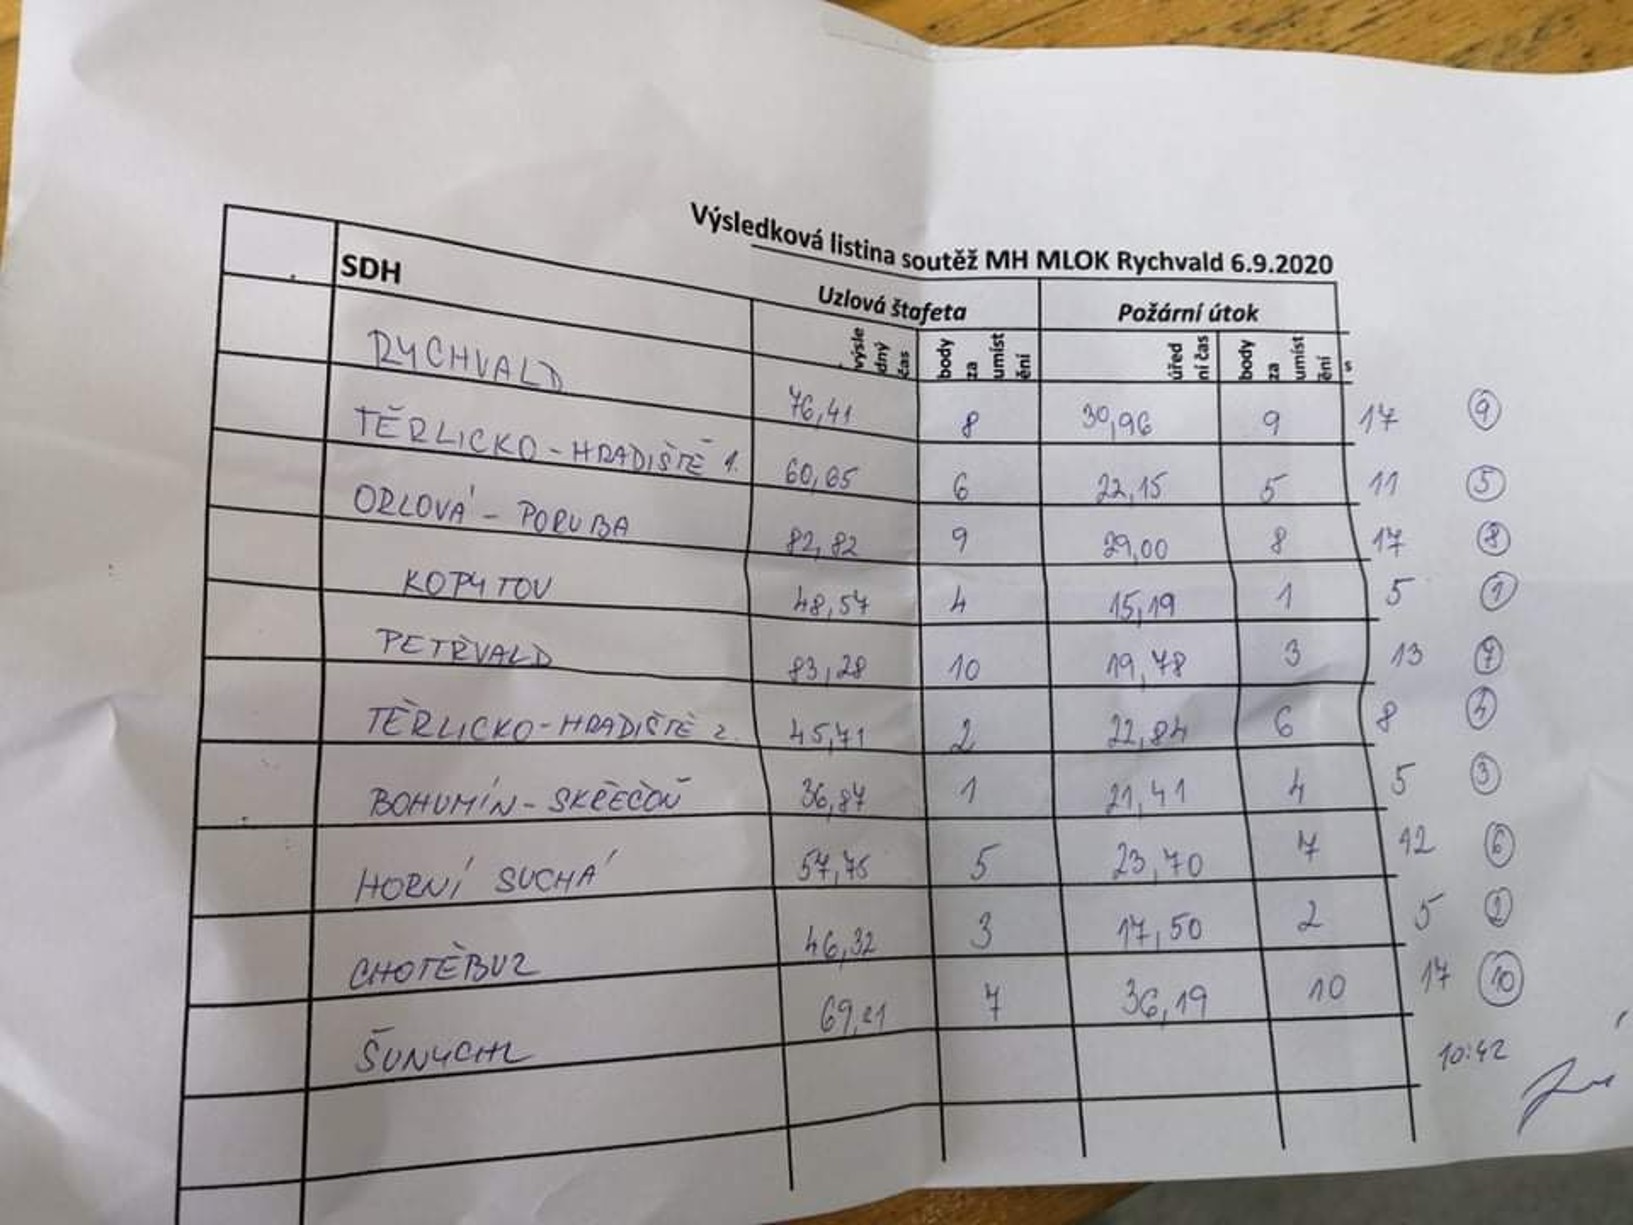 Výsledková listina soutěž MH MLOK Rychvald 6.9.2020
SDH Uzlová štafeta Požární útok
výsle dný čas body za umíst ění úřed ní čas body za umíst ění s
RYCHVALD 76,41 8 30,96 9 17 9
TĚRLICKO - HRADIŠTĚ 1. 60,65 6 22,15 5 11 5
ORLOVÁ - PORUBA 82,82 9 29,00 8 17 8
KOPYTOV 48,57 4 15,19 1 5 1
PETŘVALD 83,28 10 19,78 3 13 7
TĚRLICKO - HRADIŠTĚ 2. 45,71 2 22,84 6 8 4
BOHUMÍN - SKŘEČOŇ 36,87 1 21,41 4 5 3
HORNÍ SUCHÁ 57,75 5 23,70 7 12 6
CHOTĚBUZ 46,32 3 17,50 2 5 2
ŠUNYCHL 69,21 7 36,19 10 17 10
10:42